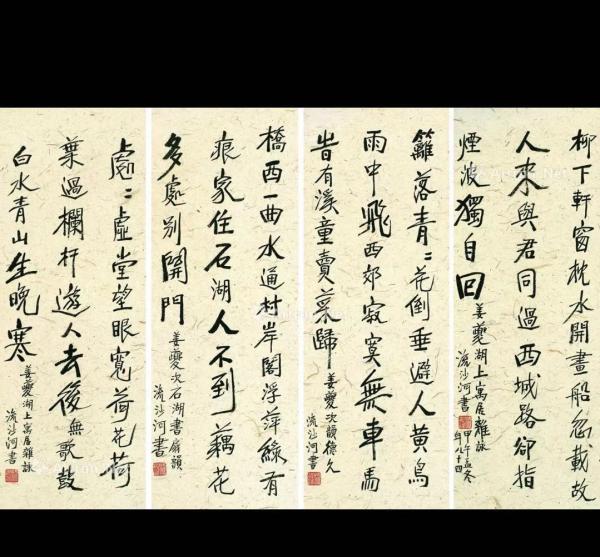 柳下軒窗枕水開畫船忽載故
人来與君同過西城路卻指
煙波獨自回
姜夔湖上寓居雜詠
流沙河書
甲午孟冬
年八十四
籬落青々花倒垂避人黄鳥
雨中飛西郊寂寞無車馬
時有溪童賣菜歸
姜夔次韻德久
流沙河書
橋西一曲水通村岸閣浮萍綠有
痕家住石湖人不到藕花
多處別開門
姜夔次石湖書扇韻
流沙河書
處々虛堂望眼寬荷花荷
葉過欄杆遊人去後無歌鼓
白水青山生晚寒
姜夔湖上寓居雜詠
流沙河書